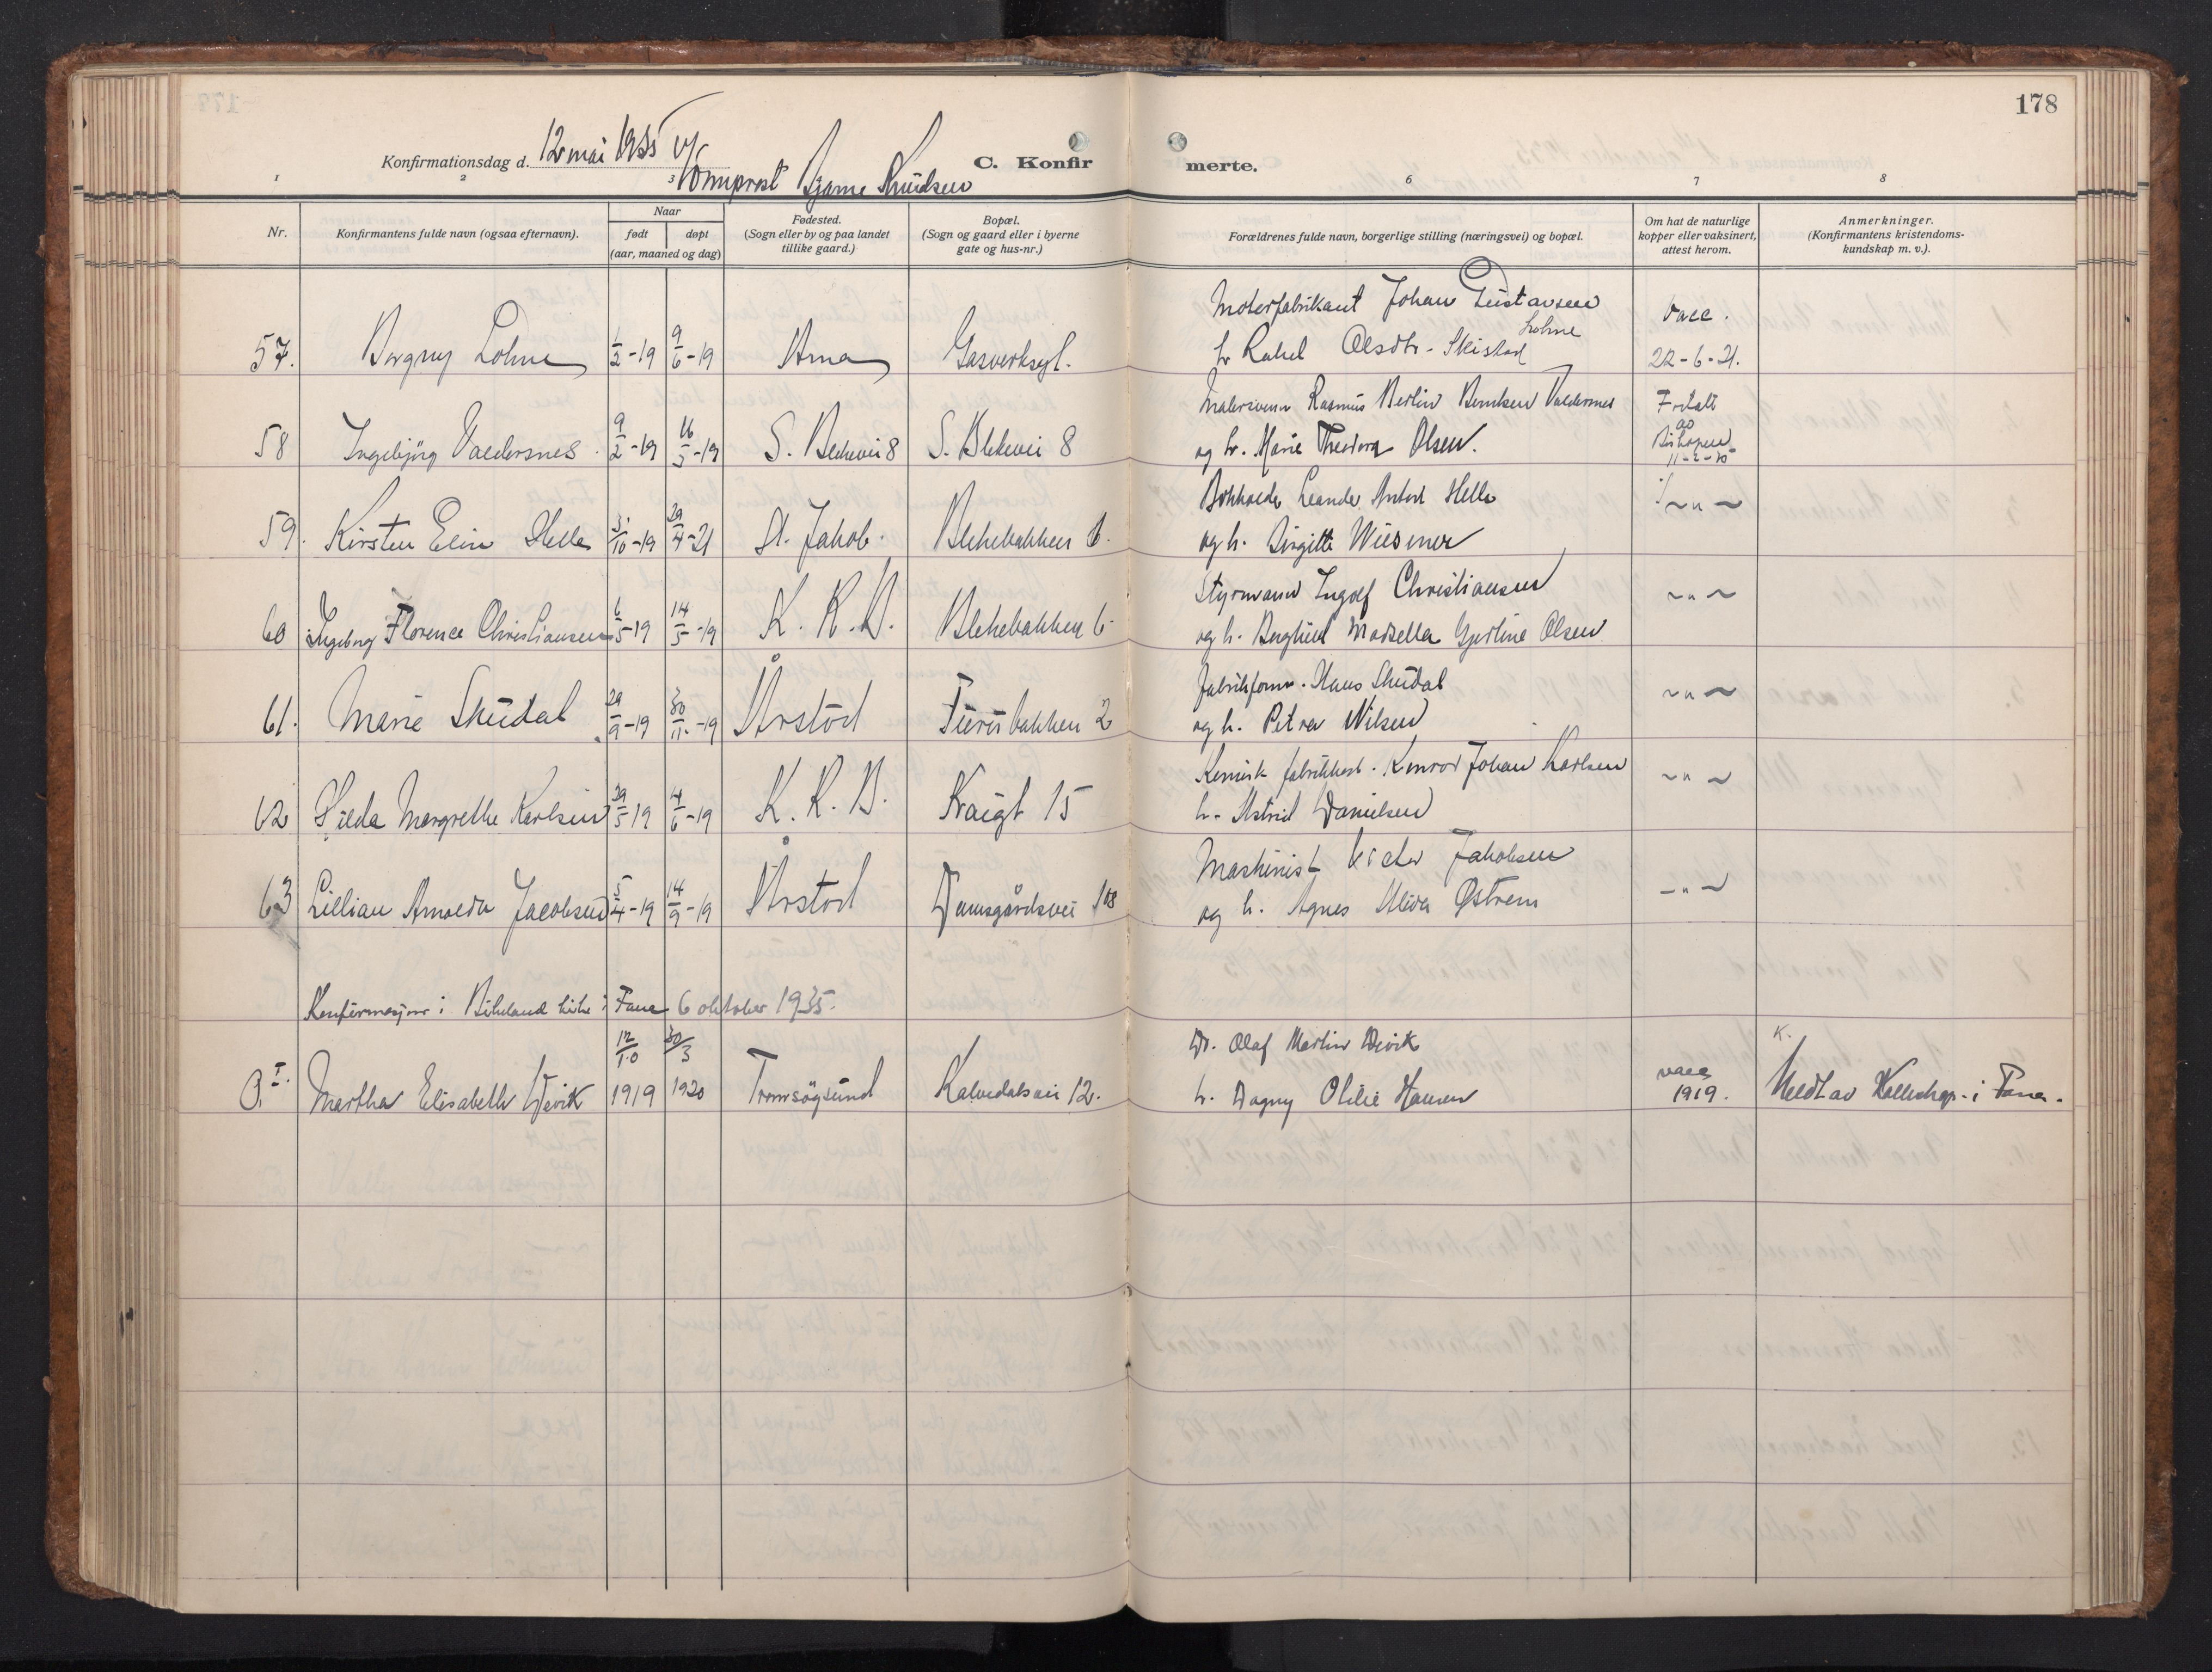 178
Konfirmationsdag d. 12 mai 1935 v/
Domprost Bjarne Knudsen
C. Konfir merte.
1 2 3 6 7 8
Nr.
Konfirmantens fulde navn (ogsaa efternavn).
Naar
født døpt
(aar, maaned og dag)
Fødested.
(Sogn eller by og paa landet
tillike gaard.)
Bopæl.
(Sogn og gaard eller i byerne
gate og hus-nr.)
Forældrenes fulde navn, borgerlige stilling (næringsvei) og bopæl.
Om hat de naturlige
kopper eller vaksinert,
attest herom.
Anmerkninger.
(Konfirmantens kristendoms-
kundskap m. v.).
Motorfabrikant Johan Gustavsen
Lohne
vacc.
57. Borgny Lohne 1/2-19 9/6-19 Arna Gasverksgt. h. Rakel Olsdtr. Skistad 22-6-21.
Malersvenn Rasmus Berlin Berntsen Valdersnes Fritatt
av
58 Ingebjørg Valdersnes 9/2-19 16/3-19 S. Blekevei 8 S. Blekevei 8 og h. Marie Theodora Olsen. Biskopen
11-2-35
Bokholder Leander Anton Helle ~"~
59. Kirsten Elin Helle 3/10-19 29/4-21 St. Jakob. Blekebakken 6. og h. Birgitte Wiesener
Styrmann Ingolf Christiansen ~"~
60 Ingeborg Florence Christiansen 6/5-19 14/5-19 K. K. B. Blekebakken 6 og h. Borghild Marsella Gjertine Olsen
Fabrikform. Hans Skudal ~"~
61. Marie Skudal 29/9-19 30/11-19 Årstad 2 og h. Petra Nilsen
Kemisk Konrad Johan Karlsen ~"~
62 Gilda Margrethe Karlsen 29/5-19 14/6-19 K. K. B. Kraigt 15 h. Astrid Danielsen
Maskinist Victor Jakobsen
63 Lillian Amalda Jacobsen 5/4-19 14/9-19 Årstad Damsgårdsvei 108 og h. Agnes Østrem ~"~
Konfirmasjon i Birkeland kirke i Fana 6 oktober 1935.
12/10 30/3 Dr. Olaf Martin Devik K.
I. Martha Elisabeth Devik 1919 1920 Tromsøysund Kalvedalsvei 12. h. Dagny Otilie Hansen vacc 1919. Meldt av i Fana.